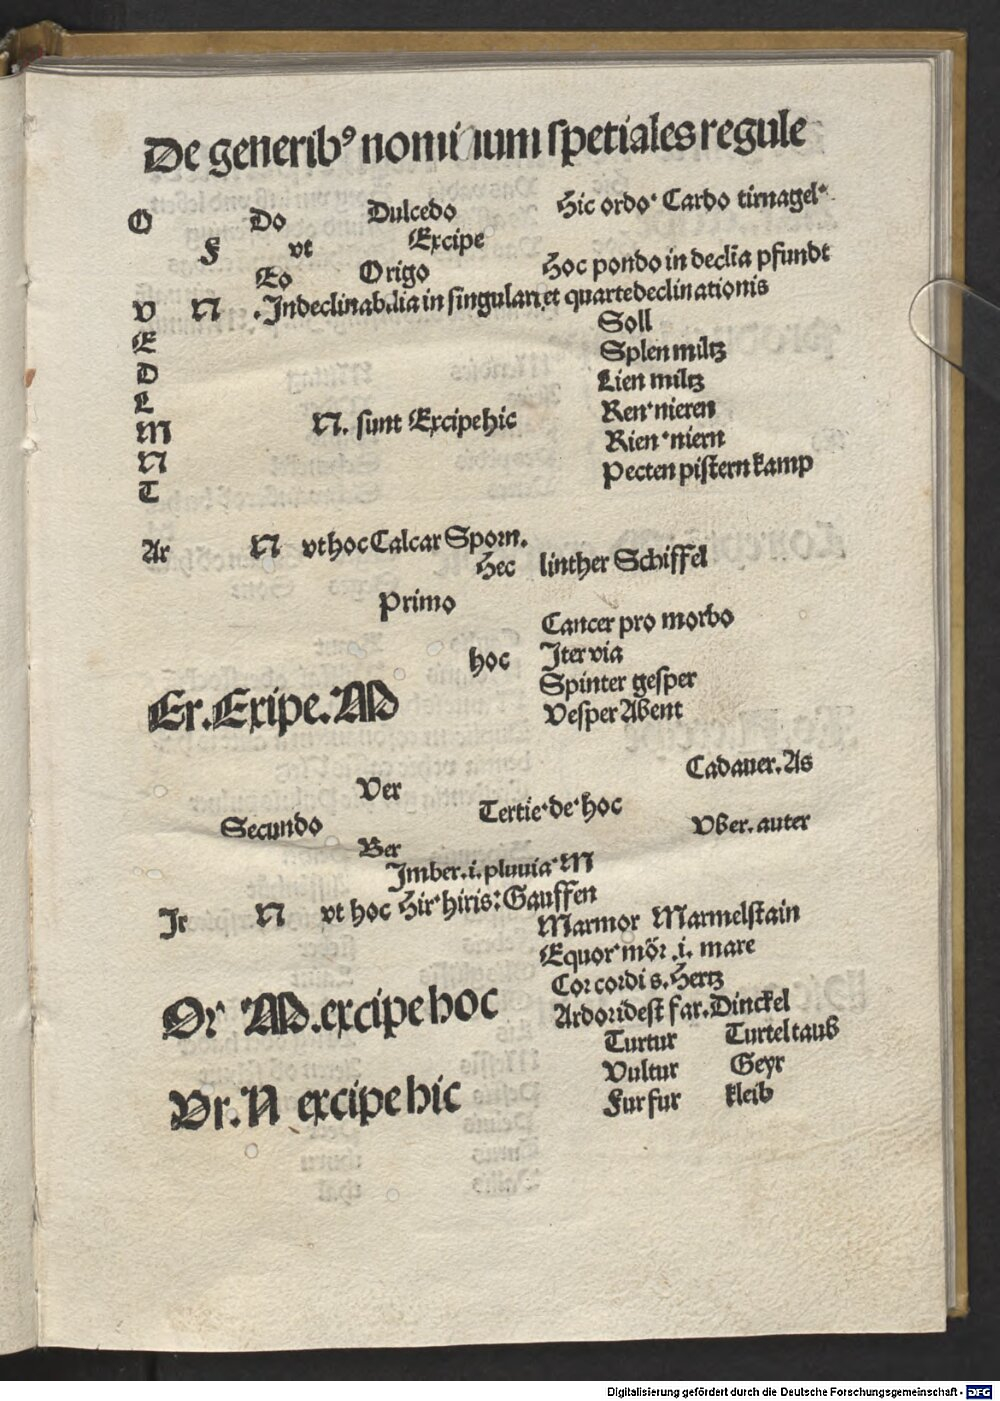 De generibꝰ nomi ium spetiales regule
O Do Dulcedo Hic ordo· Cardo tirnagel·
F vt Excipe
Eo Origo Hoc pondo in declīa pfundt
V N .Indeclinabilia in singulari et quarte declinationis
E Soll
Splen miltz
D Lien miltz
L Ren·nieren
M N. sunt Excipe hic Rien·niern
N Pecten pistern kamp
T
Ar N vt hoc Calcar Sporn.
Hec linther Schiffel
Primo Cancer pro morbo
hoc Iter via
Spinter gesper
Er.Exipe.M Vesper Abent
Cadauer.As
Ver Tertie·de·hoc
Secundo Vber.auter
Ber
Imber.i.pluuia·M
Ir N vt hoc Hir·hiris:Gauffen
Marmor Marmelstain
Equor·mör.i. mare
Cor cordis.Hertz
Or M.excipe hoc Ardoridest far.Dinckel
Turtur Turteltaub
Vultur Geyr
Vr.N excipe hic Furfur kleib
Digitalisierung gefördert durch die Deutsche Forschungsgemeinschaft - DFG